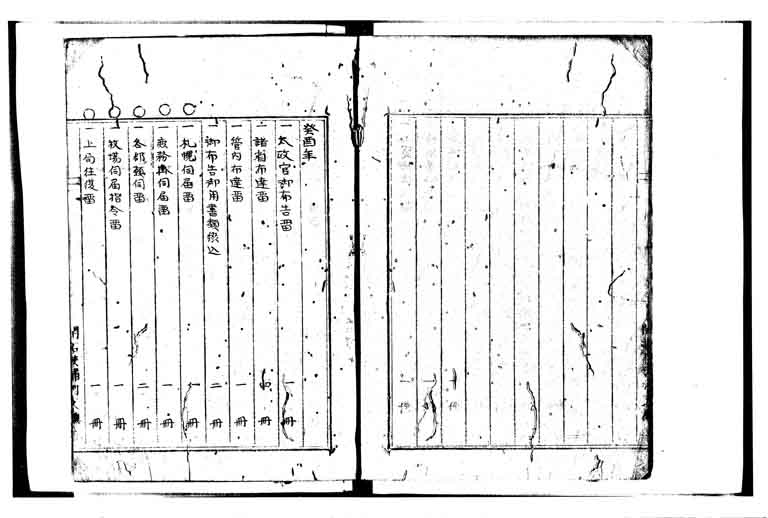 癸酉年
一 太政官御布告留 一 冊
一 諸省布達留 四 冊
一 管内布達留 一 冊
一 御布告御用書類綴込 二 冊
一 札幌伺届留 一 冊
一 庶務掛伺届留 一 冊
一 各部張伺留 二 冊
一 牧場伺届指令留 一 冊
一 上局往復留 一 冊